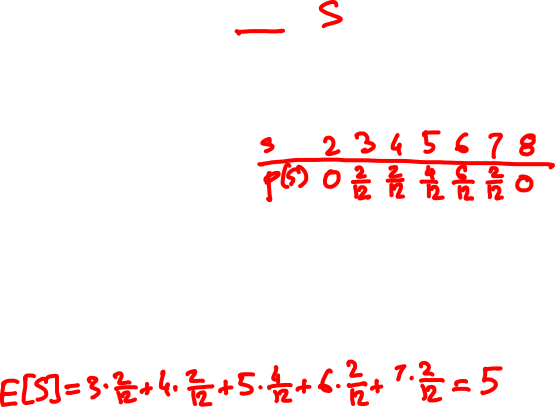 S
s 2 3 4 5 6 7 8
p(S) 0 2/12 2/12 4/12 6/12 2/12 0
E[S] = 3·2/12 + 4·2/12 + 5·4/12 + 6·2/12 + 7·2/12 = 5